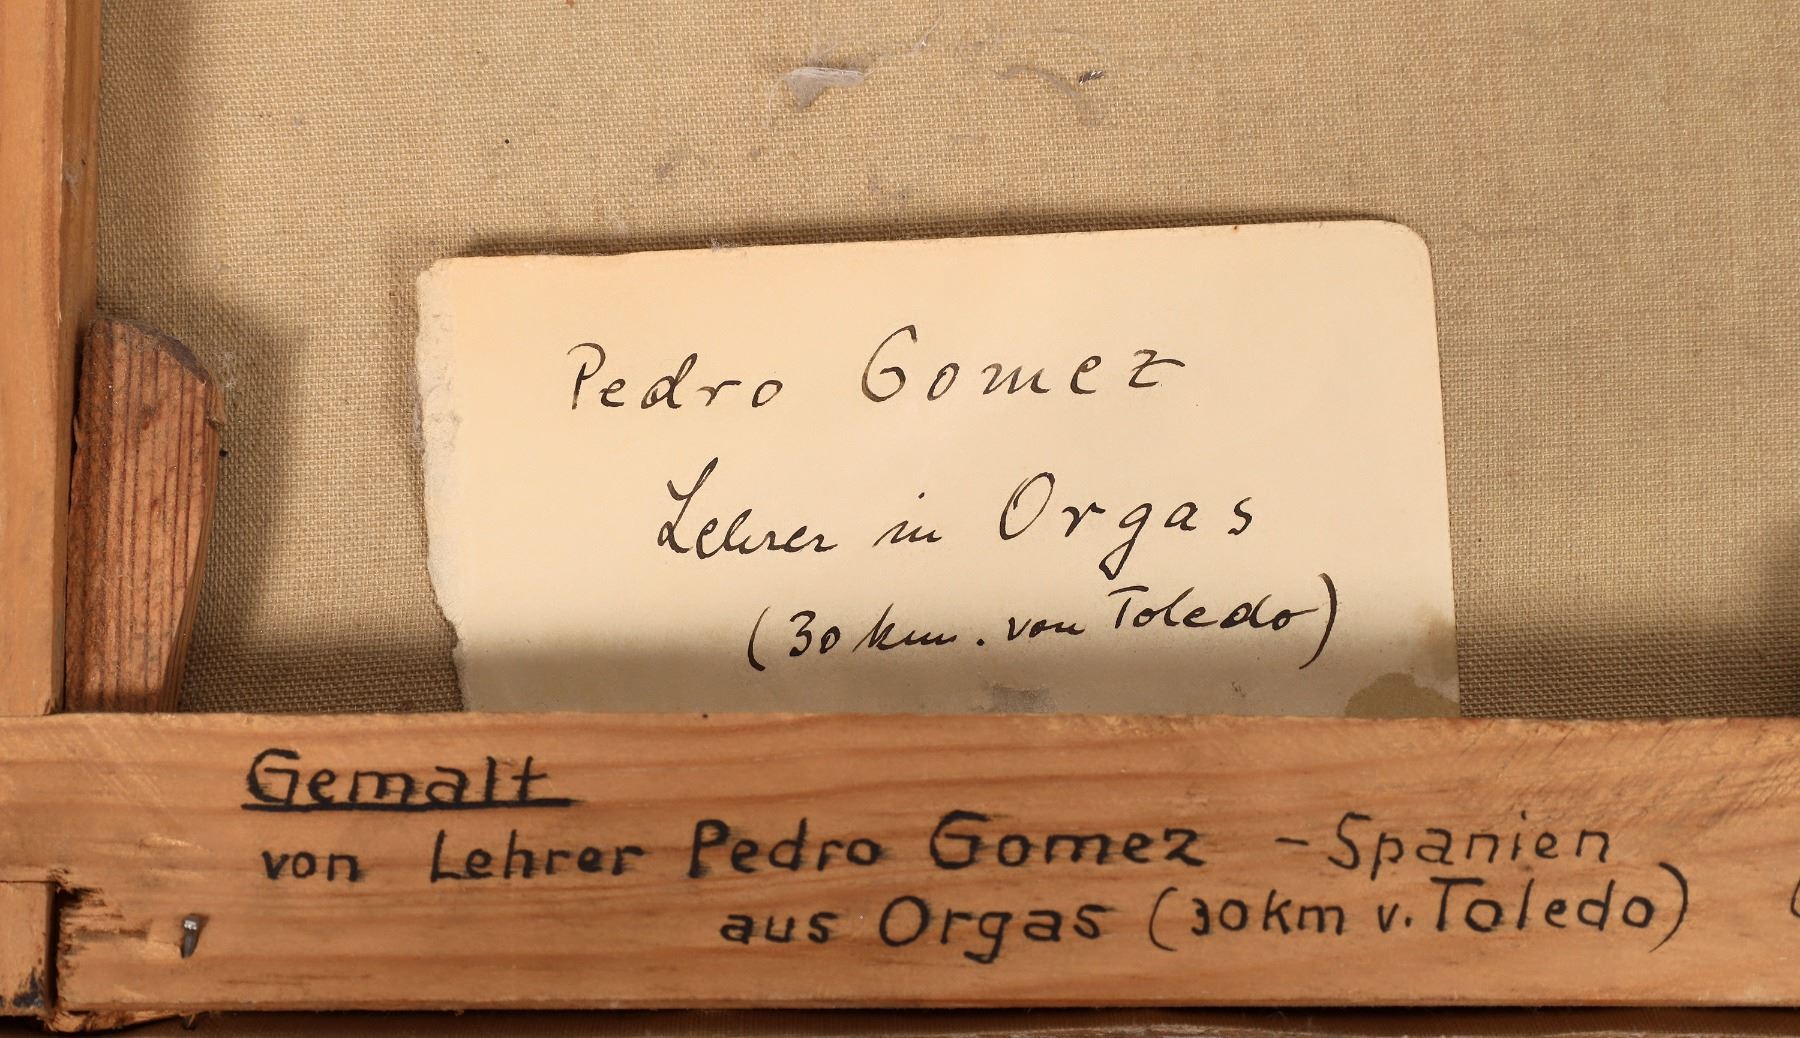 Pedro Gomez
Lehrer in Orgas
(30 km. von Toledo)
Gemalt
von Lehrer Pedro Gomez - Spanien
aus Orgas (30km v. Toledo)